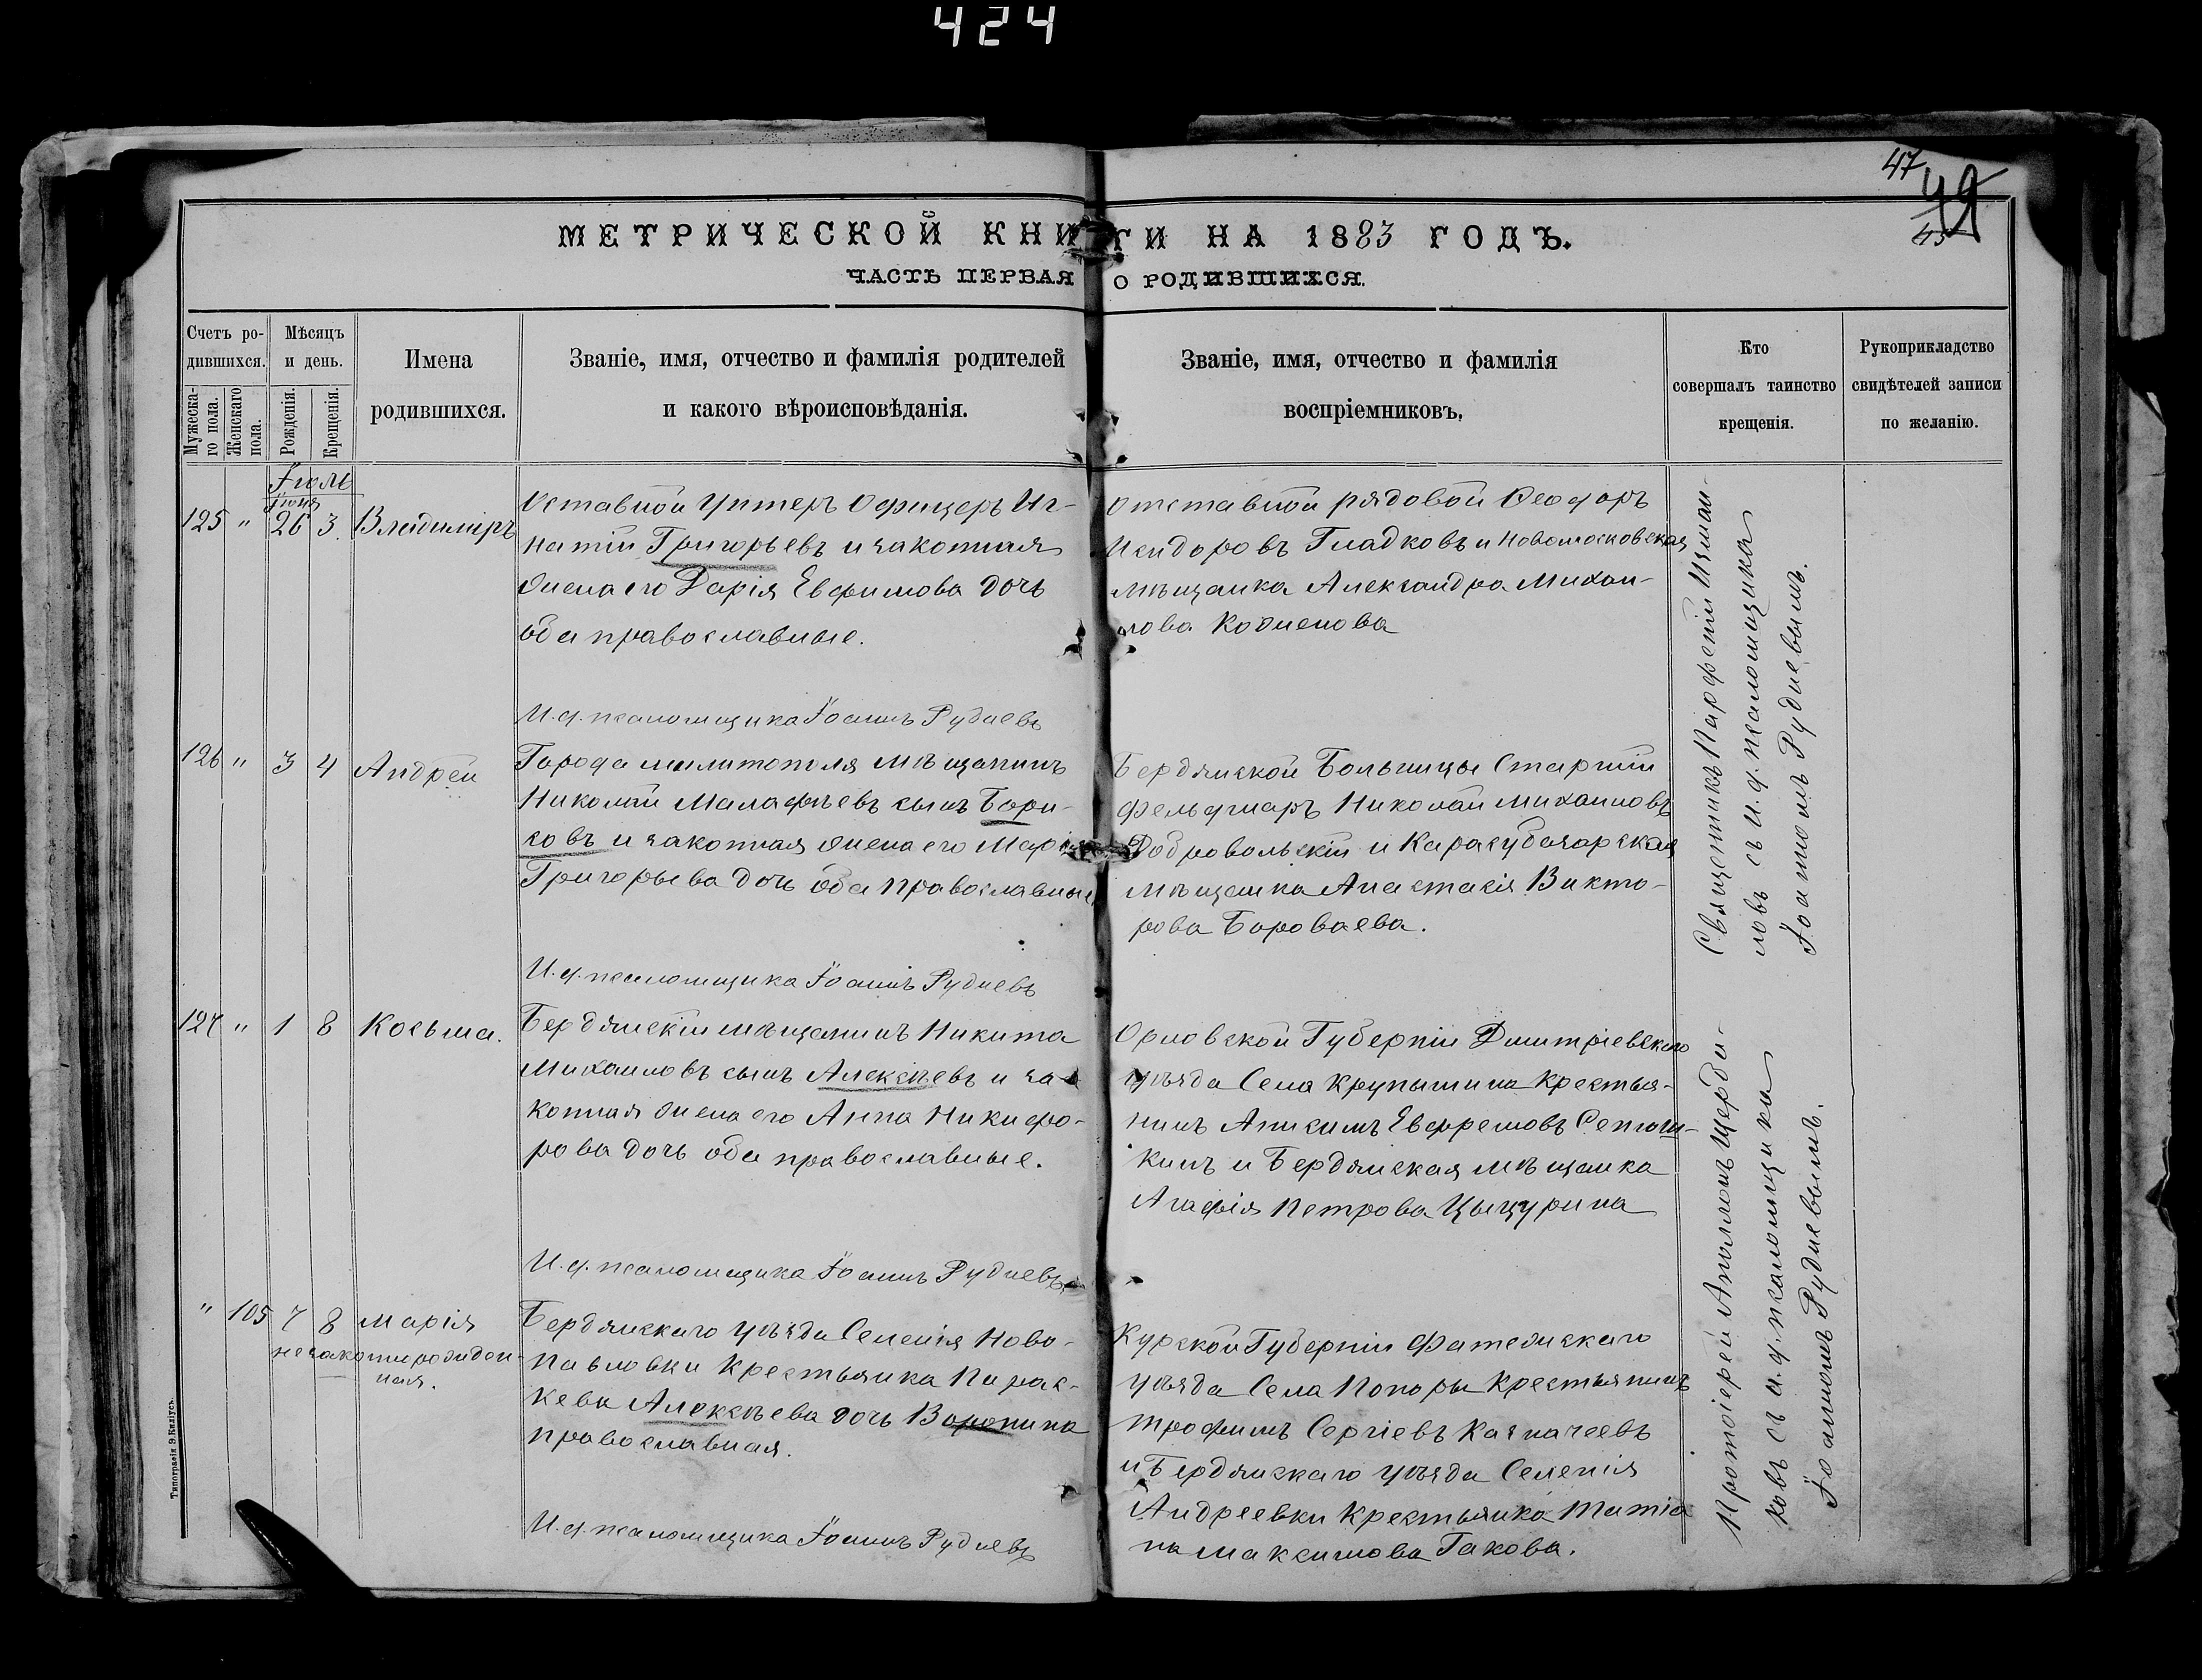 424
47
49
45
МЕТРИЧЕСКОЙ КНИГИ НА 1883 ГОДЪ.
ЧАСТЬ ПЕРВАЯ О РОДИВШИХСЯ.
Счетъ ро-
дившихся.
Мужеска-
го пола.
Женскаго
пола.
Мѣсяцъ
и день.
Рожденія.
Крещенія.
Имена
родившихся.
Званіе, имя, отчество и фамилія родителей
и какого вѣроисповѣданія.
Званіе, имя, отчество и фамилія
воспріемниковъ.
Кто
совершалъ таинство
крещенія.
Рукоприкладство
свидѣтелей записи
по желанію.
Іюль
Іюня
125 " 26 3. Владиміръ
Оставной Унтеръ Офицеръ Иг-
натій Григорьевъ и законная
жена его Дарія Евфимова дочь
оба православные.
И. д. псаломщика Іоаннъ Рудневъ
Отставной рядовой Ѳеодоръ
Исидоровъ Гладковъ и Новомосковская
мѣщанка Александра Михаи-
лова
126 " 3 4 Андрей
Города милитополя мѣщанинъ
Николай Малафѣевъ сынъ Бори-
совъ и законная жена его Марія
Григорьева дочь оба православные
И. д. псаломщика Іоаннъ Рудневъ
Бердянской Больницы Старшій
фельдшаръ Николай Михаиловъ
Добровольскій и Карасубазарская
мѣщанка Анастасія Викто-
рова Бороваева.
Священникъ Парфеній Измаи-
ловъ съ и. д. псаломщика
Іоанномъ Рудневымъ.
127 " 1 8 Косьма.
Бердянскій мѣщанинъ Никита
Михаиловъ сынъ Алексѣевъ и за-
конная жена его Анна Никифо-
рова дочь оба православные.
И. д. псаломщика Іоаннъ Рудневъ
Орловской Губерніи Дмитріевскаго
уѣзда Села Крупышина Крестья-
нинъ Анисимъ Евфремовъ Сенюш-
кинъ и Бердянская мѣщанка
Агафія Петрова Цыцурина
" 105 7 8 Марія
незаконнорожден-
ная.
Бердянскаго уѣзда Селенія Ново-
павловки Крестьянка Парас-
кева Алексѣева дочь Воронина
православная.
И. д. псаломщика Іоаннъ Рудневъ
Курской Губерніи Фатежскаго
уѣзда Села Поноры Крестьянинъ
Трофимъ Сергіевъ Казначеевъ
и Бердянскаго уѣзда Селенія
Андреевки Крестьянка Татіа
на Максимова Гакова.
Протоіерей Аполлонъ
ковъ съ и. д. псаломщика
Іоанномъ Рудневымъ.
Типографія Э. Киліусъ.